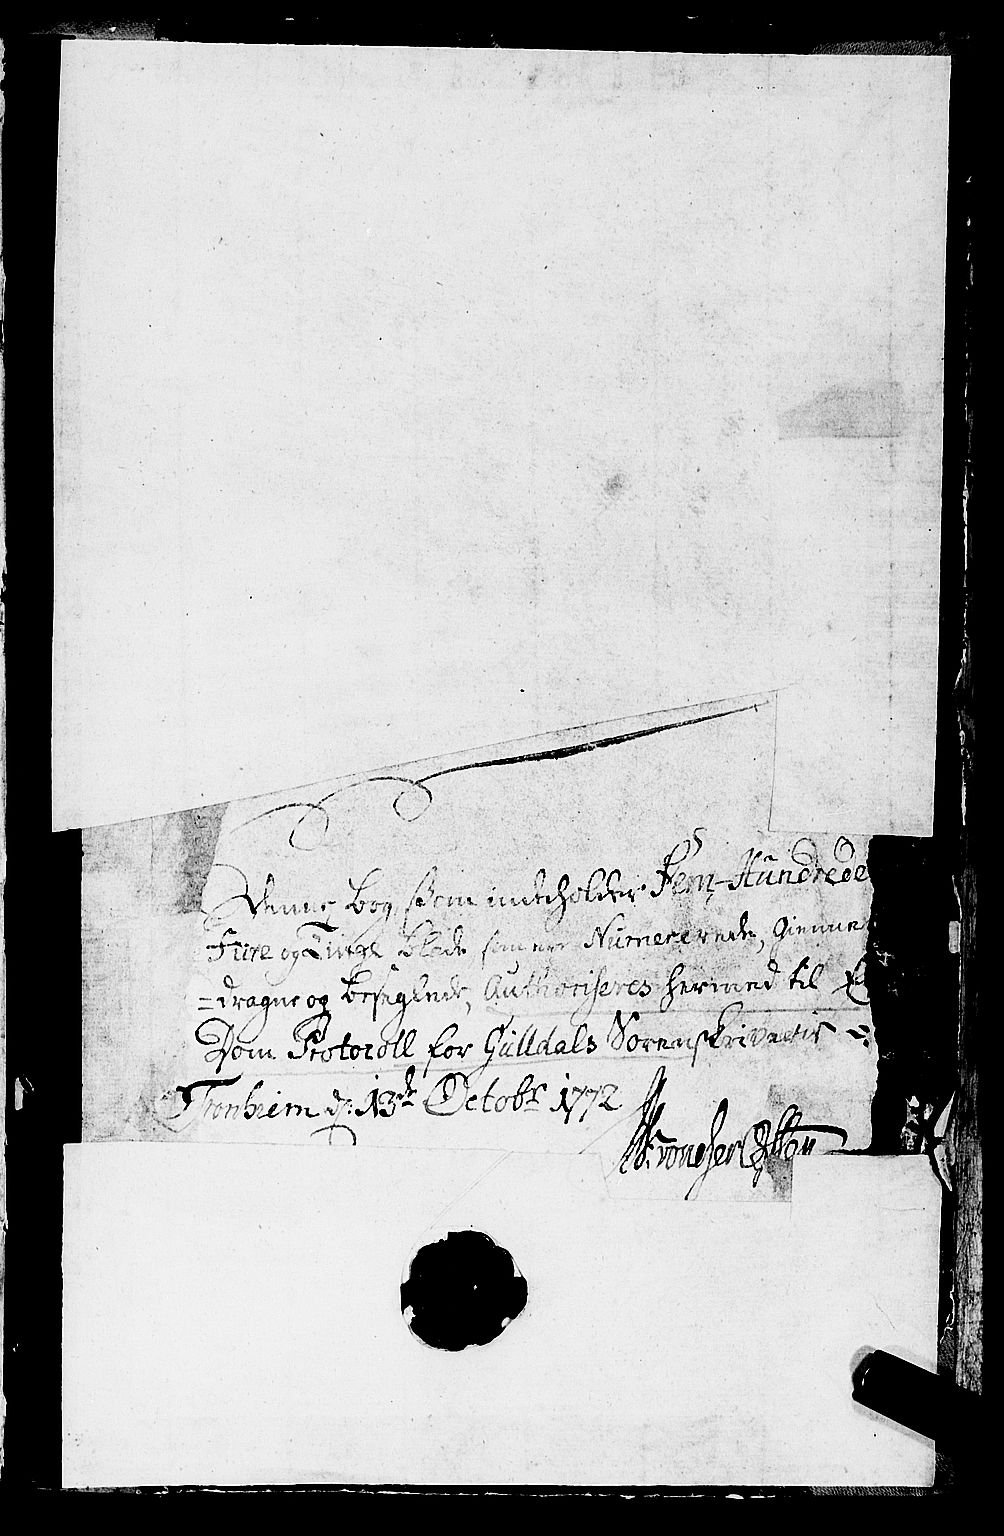 Denne bog, som indeholder Fem-Hundrede
Fire og Tive blade, som er Numererede, Giennem
=dragne og beseglede, Authoriseres hermed til
Dom Protocoll for Gulldals Sorenskriverie
Tronhiem d: 13de Octobr 1772